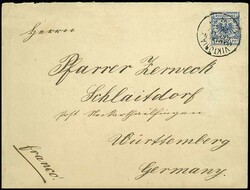 Herrn
Pfarrer Zerweck
Schlaitdorf
post Neckarthailfingen
Württemberg
Germany.
franco!
VIKTORIA